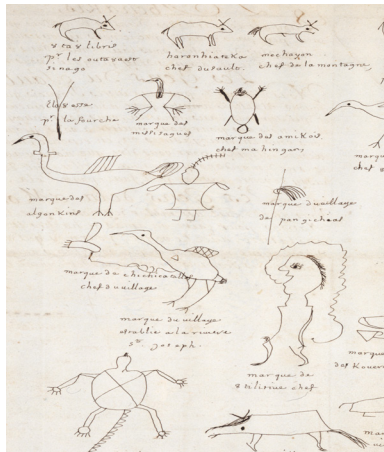 8 tax libris
pr les outa8aest
sinago
haronhiateka
chef du sault
mechayon
chef de la montagne,
pr la fourche
marque des
missisagues
marque des amikois
chef mahingan,
marque
chef
marque des
algonkins
marque du village
de
marque de chichicatalo
chef du village
marque du village
etablie a la riviere
st joseph
marque de
chef
marque
des kouera
ma